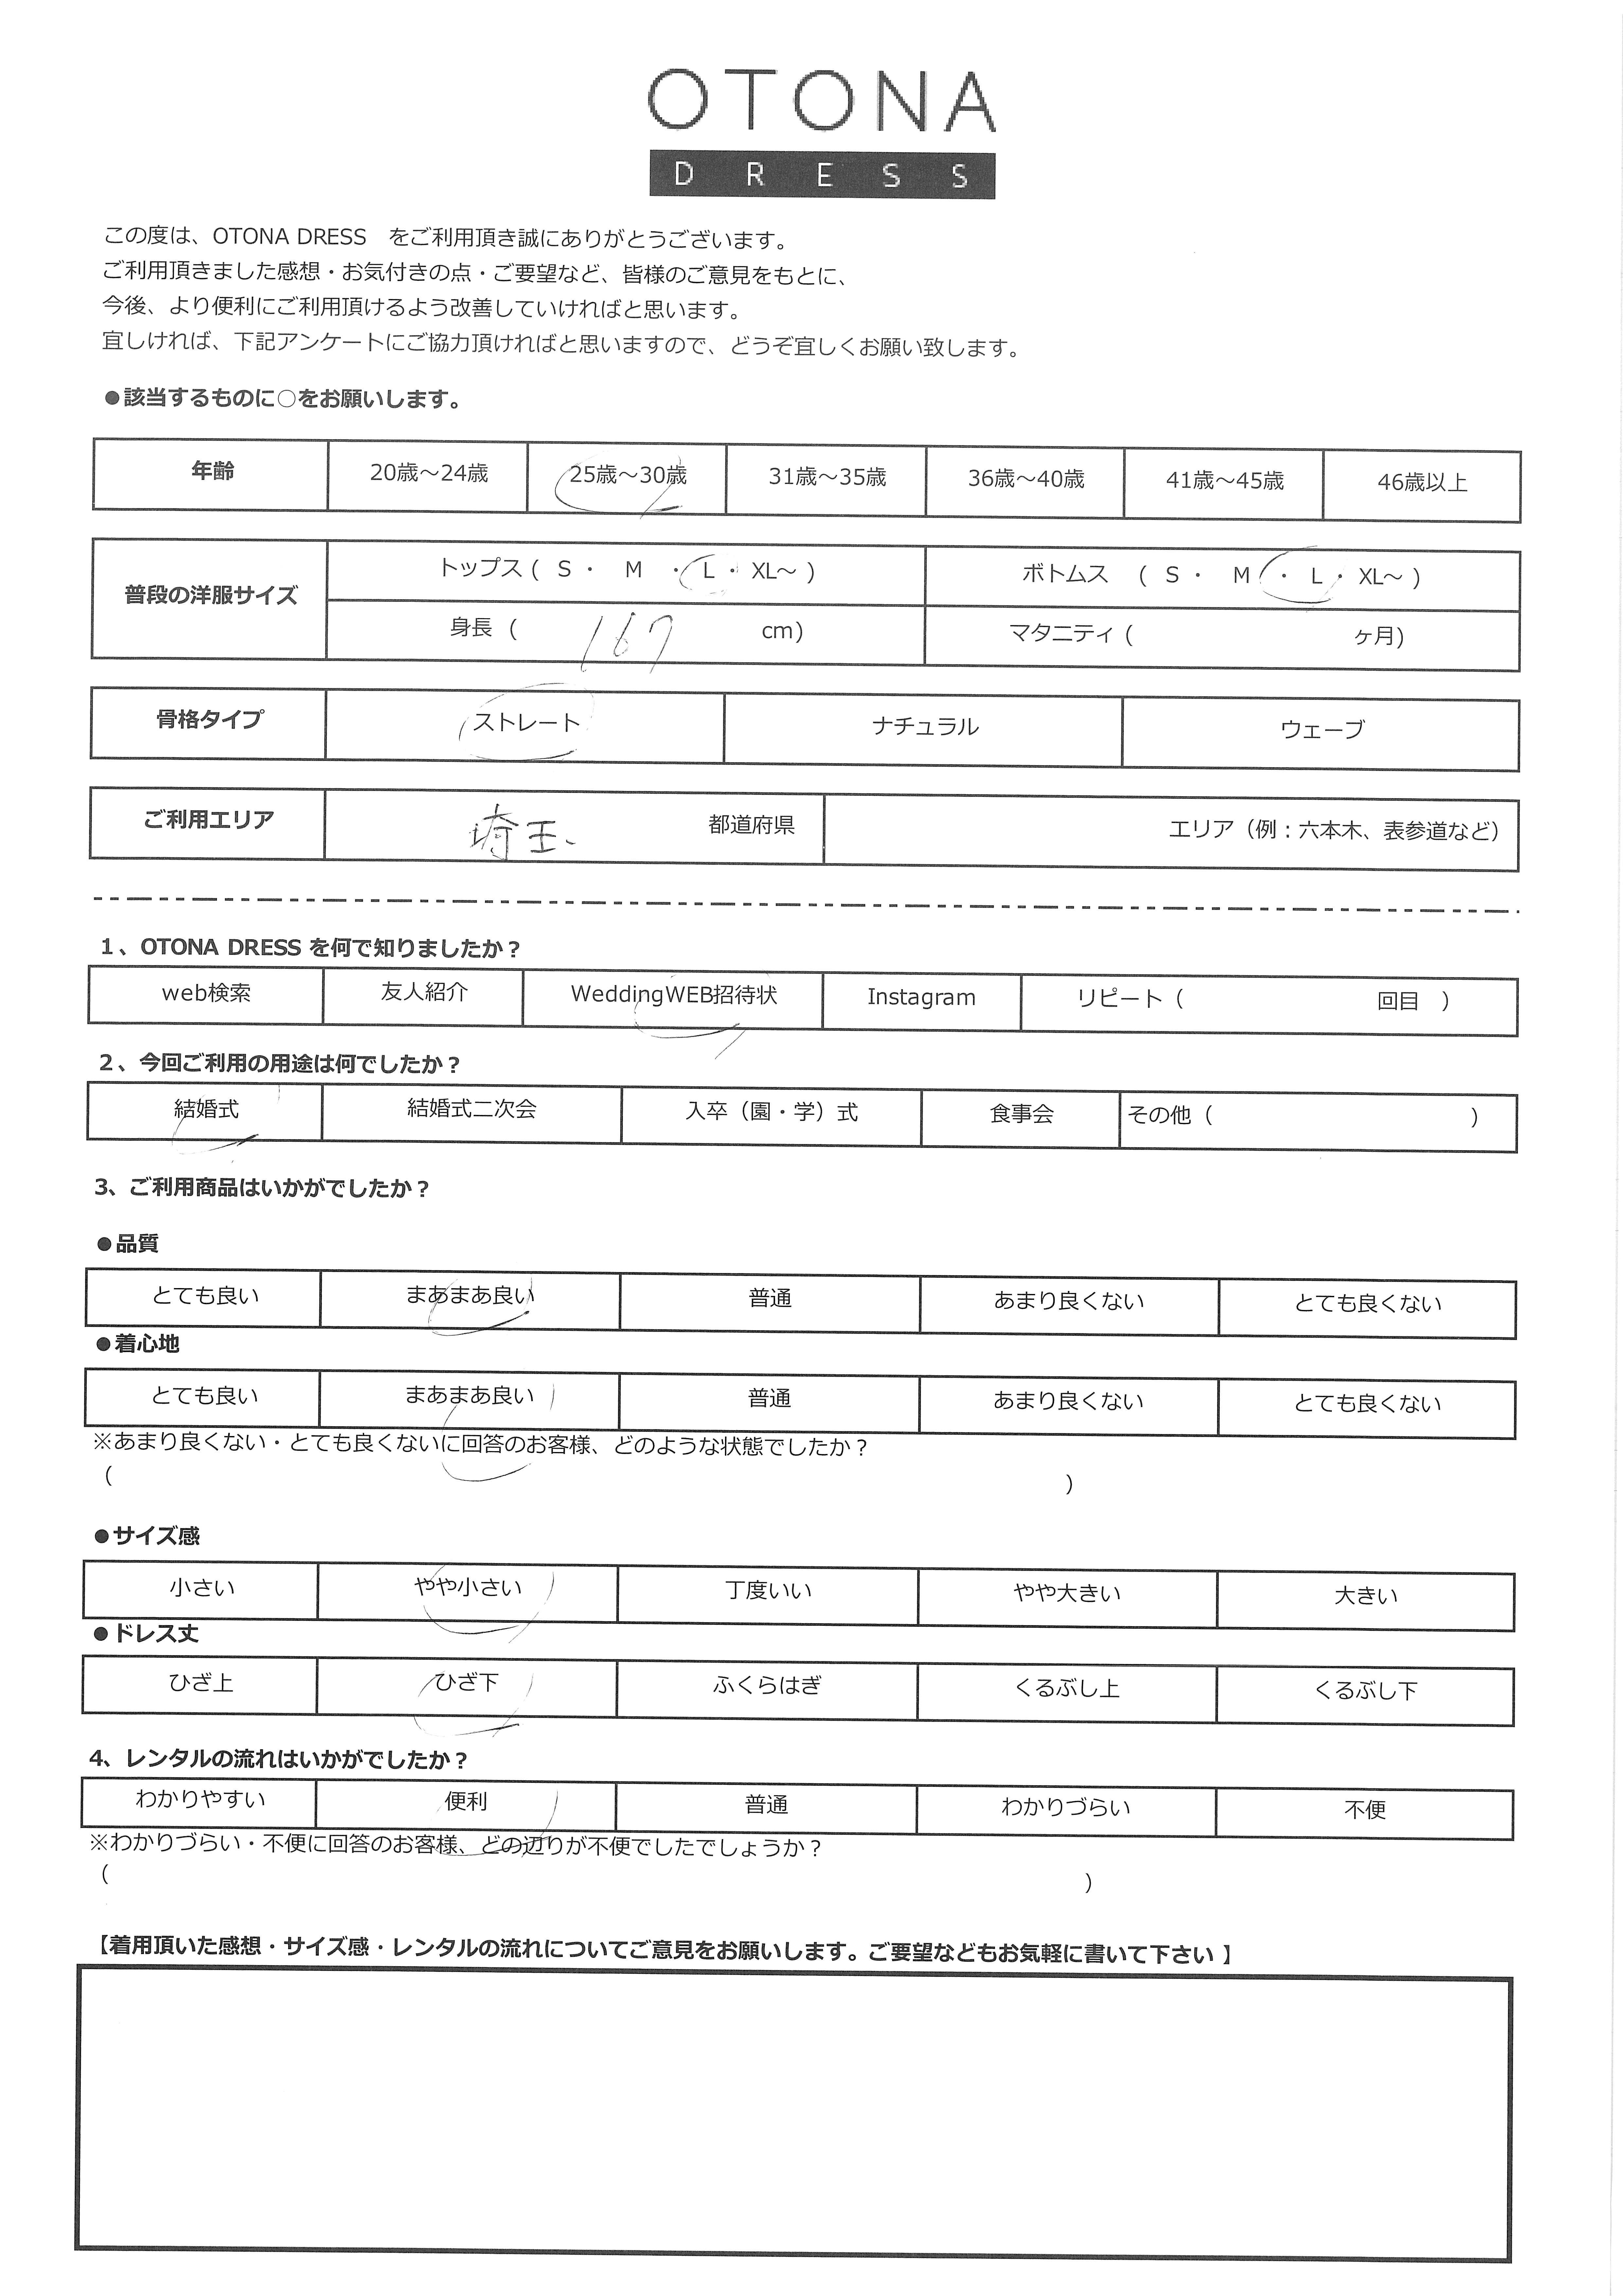 OTONA
DRESS
この度は、OTONA DRESS　をご利用頂き誠にありがとうございます。
ご利用頂きました感想・お気付きの点・ご要望など、皆様のご意見をもとに、
今後、より便利にご利用頂けるよう改善していければと思います。
宜しければ、下記アンケートにご協力頂ければと思いますので、どうぞ宜しくお願い致します。
●該当するものに○をお願いします。
年齢 20歳～24歳 25歳～30歳 31歳～35歳 36歳～40歳 41歳～45歳 46歳以上
普段の洋服サイズ トップス ( S ・ M ・ L ・ XL～ ) ボトムス ( S ・ M ・ L ・ XL～ )
身長 ( 167 cm) マタニティ ( ヶ月)
骨格タイプ ストレート ナチュラル ウェーブ
ご利用エリア 埼玉 都道府県 エリア（例：六本木、表参道など）
1、OTONA DRESS を何で知りましたか？
web検索 友人紹介 WeddingWEB招待状 Instagram リピート（ 回目 ）
2、今回ご利用の用途は何でしたか？
結婚式 結婚式二次会 入卒（園・学）式 食事会 その他（ ）
3、ご利用商品はいかがでしたか？
●品質
とても良い まあまあ良い 普通 あまり良くない とても良くない
●着心地
とても良い まあまあ良い 普通 あまり良くない とても良くない
※あまり良くない・とても良くないに回答のお客様、どのような状態でしたか？
( )
●サイズ感
小さい やや小さい 丁度いい やや大きい 大きい
●ドレス丈
ひざ上 ひざ下 ふくらはぎ くるぶし上 くるぶし下
4、レンタルの流れはいかがでしたか？
わかりやすい 便利 普通 わかりづらい 不便
※わかりづらい・不便に回答のお客様、どの辺りが不便でしたでしょうか？
( )
【着用頂いた感想・サイズ感・レンタルの流れについてご意見をお願いします。ご要望などもお気軽に書いて下さい 】